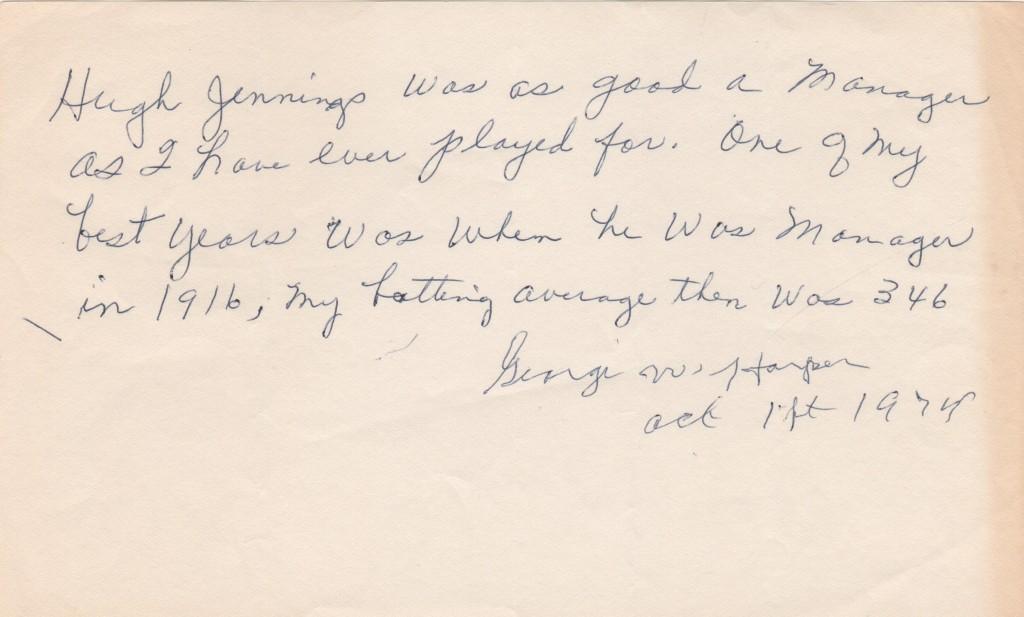 Hugh Jennings was as good a Manager
as I have ever played for. One of My
best years was when he was Manager
in 1916, My batting average then was 346
George W. Harper
Oct 1st 1974